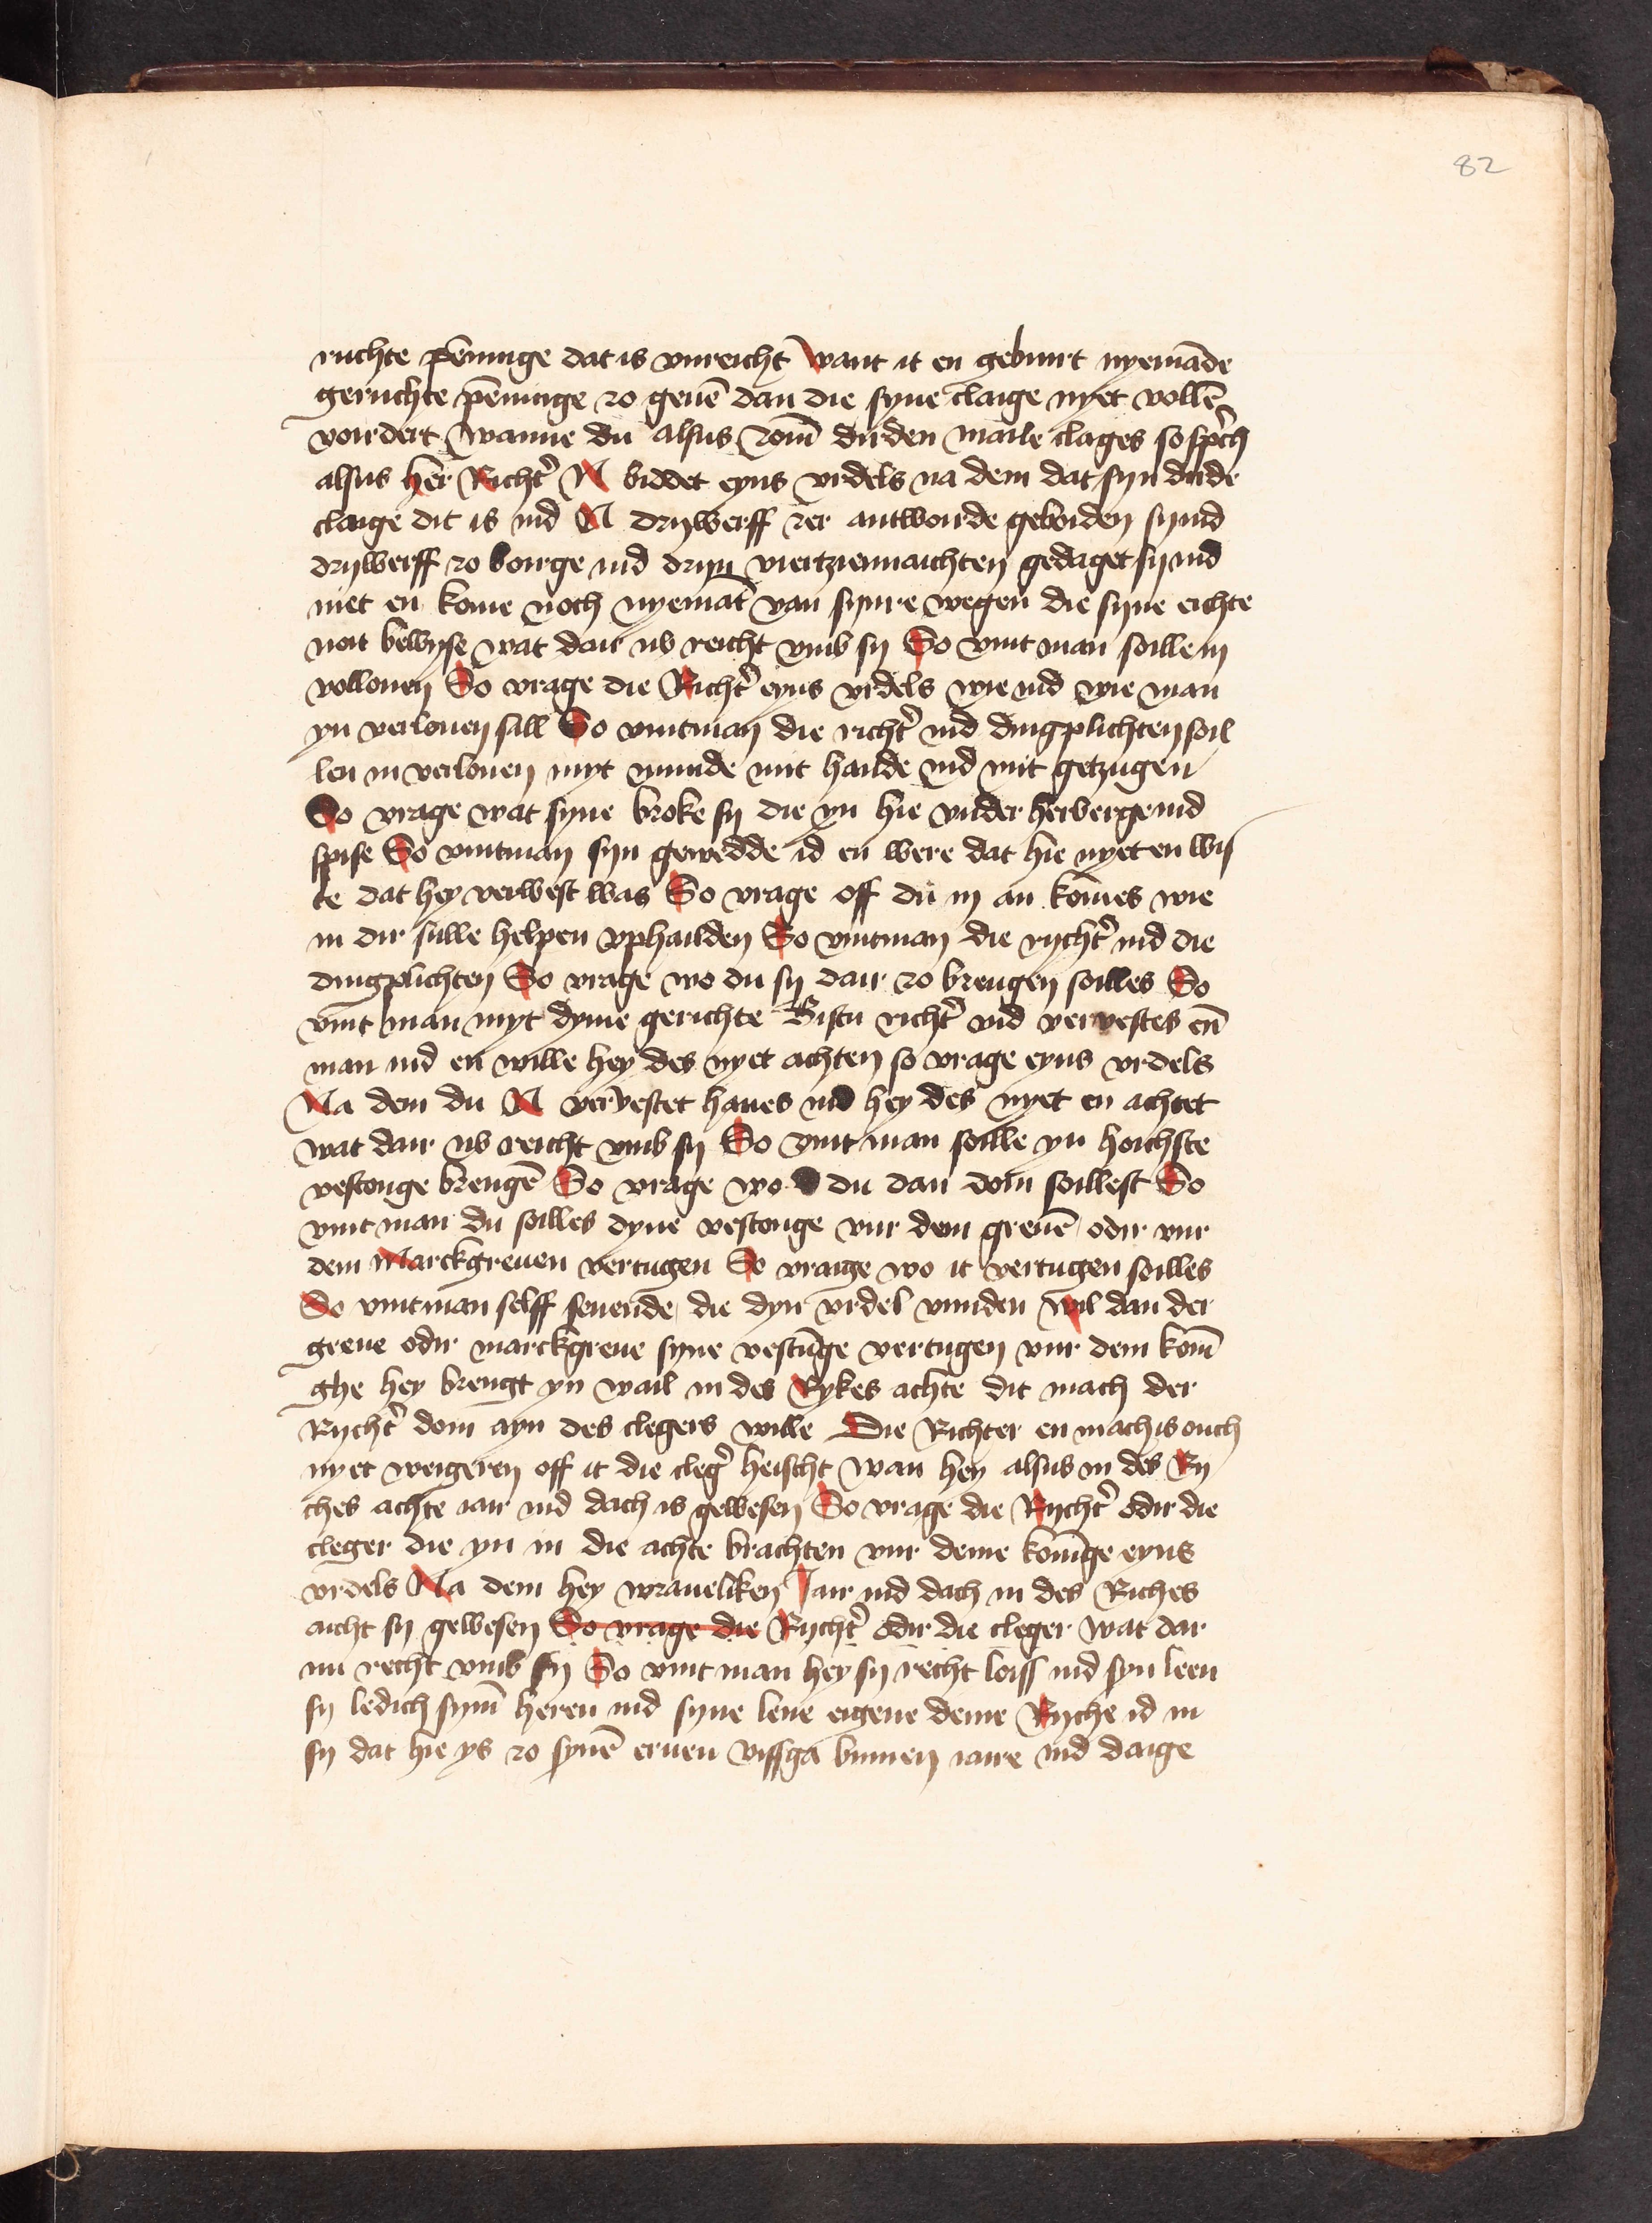 82
ruchte pēninge dat is vnreicht want it en geburt nyemāde
geruchte pēninge zo geuē dan die syne claige nyet vollē
vordert wanne du alsus zom̄ dirden maile clages so sprich
alsus her Richt' N biddet eyns vrdels na dem dat syn dirde
claige dit is ind N drywerff zer antworde geboiden sy ind
drywerff zo borge ind dryn viertziennaichten gedaget sy ind
niet en kome noch nyemāt van synre wegen die syne eichte
noit bewyse wat dair vb reicht vmb sy So vint man soille in
vollouen So vrage die Richt' eyns vrdels wie ind wie man
yn verlouen sall So vintman die richt' ind dingplichten soil
len in verlouen myt munde mit hande ind mit getzugen
So vrage wat syne broke sy die yn hie vnder herberge ind
spise So vintman syn gewedde id en were dat hie nyet en wis
te dat hey verwest was So vrage off du in an komes wie
in dir sulle helpen vphailden So vintman die rycht' ind die
dingplichten So vrage wo du sy dair zo brengen soilles So
vint man myt dyme gerichte Bistu richt' vnd vervestes en̄
man ind en wille hey des nyet achten so vrage eyns vrdels
Na dem du N vervestet haues ind hey des nyet en achtet
wat dair vb reicht vmb sy So vint man soille yn hoichste
vestonge brengē So vrage wo du dan doin soillest So
vint man du soilles dyne vestonge vur dem greuē odir vur
dem Marckgreuen vertugen So vraige wo it vertugen soilles
So vintman selff seuende die dyn vrdel vunden wil dan der
greue odir marckgreue syne vestūge vertugen vur dem konī
ghe hey brengt yn wail in des Rykes achte dit mach der
Rycht' doin ayn des clegers wille Die Richter en mach is ouch
nyet weigeren off it die cleg' heischt wan hey alsus in des Ry
ches achte iair ind dach is gewesen So vrage die Rycht' odir die
cleger die yn in die achte brachten vur deme konīge eyns
vrdels Na dem hey wraueliken Jair ind dach in des Riches
aicht sy gewesen So vrage die Rycht' odir die cleger wat dar
nu recht vmb sy So vint man hey sy recht loiss ind syn leen
sy ledich sym̄ heren ind syne leue eigene deme Ryche id in
sy dat hie ys zo synē eruen vissga binnen iaire ind daige